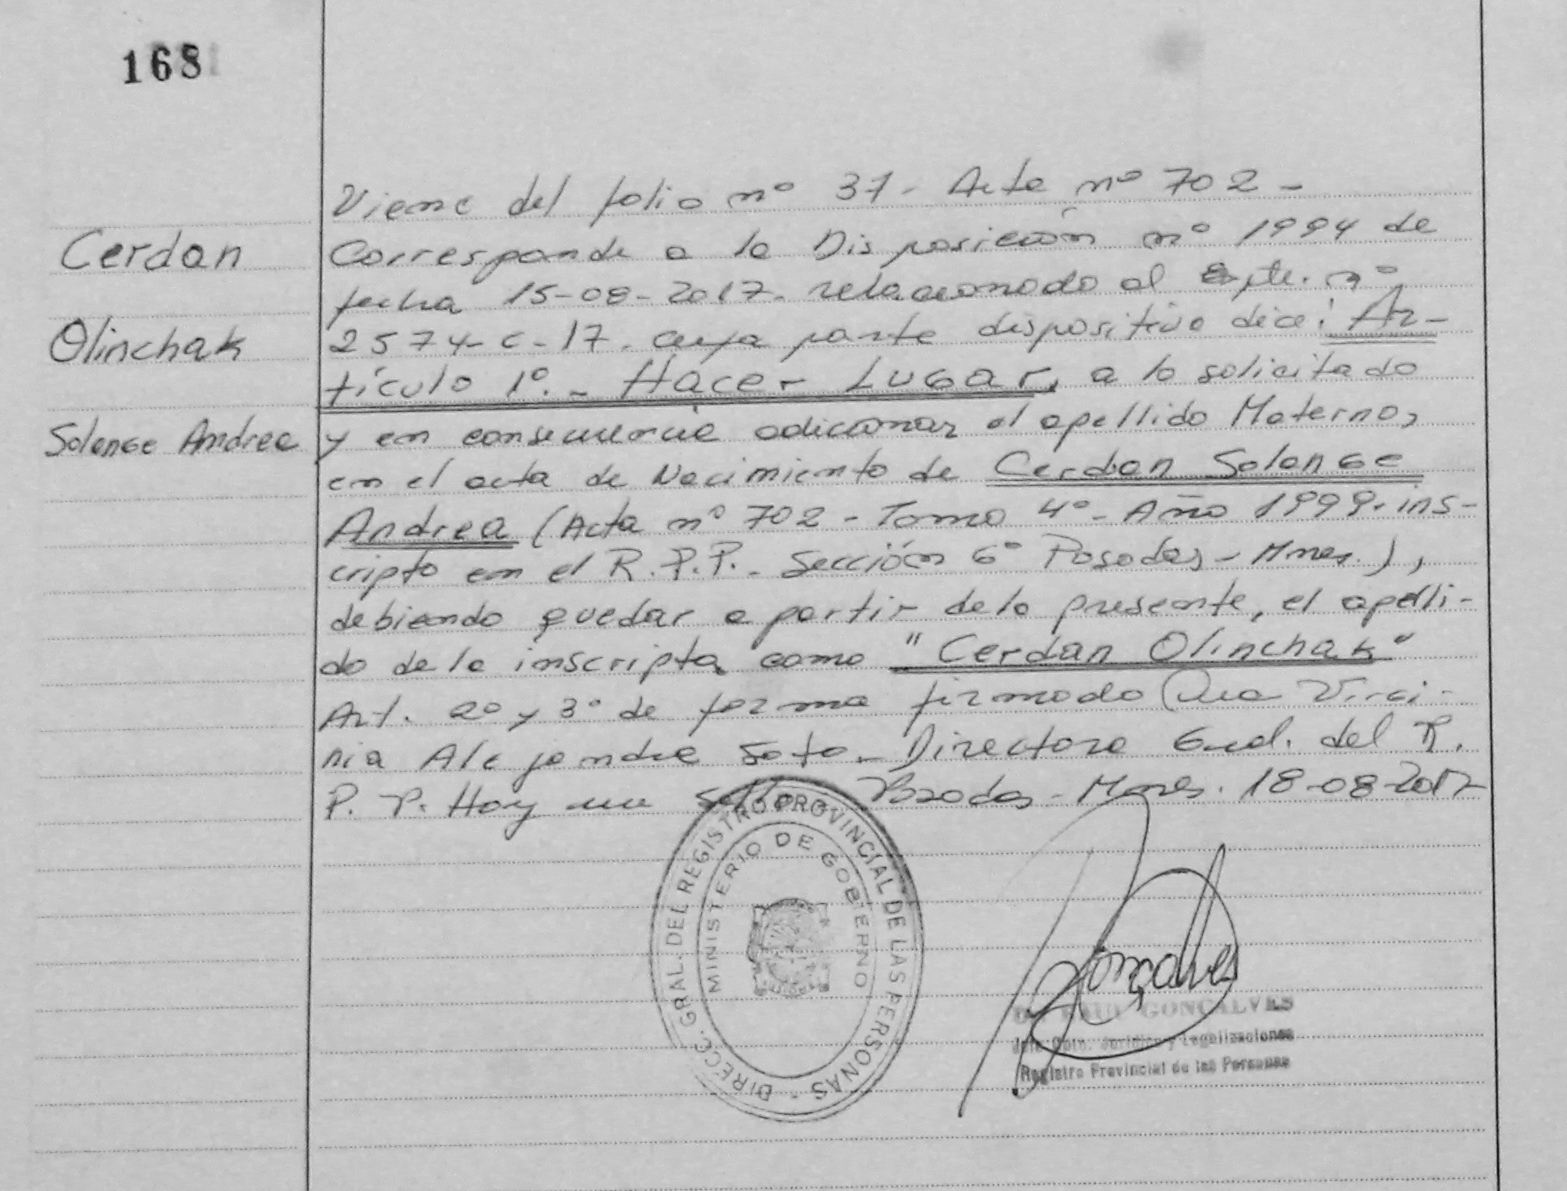 168
Cerdan
Olinchak
Solange Andrea
Viene del folio nº 37 - Acta nº 702 -
Corresponde a la Disposición nº 1994 de
fecha 15-08-2017. relacionado al Expte. nº
2574-C-17. cuya parte dispositiva dice: Ar-
tículo 1º. - Hacer Lugar, a lo solicitado
y en consecuencia adicionar el apellido Materno,
en el acta de Nacimiento de Cerdan Solange
Andrea (Acta nº 702 - Tomo 4º - Año 1999. ins-
cripto en el R.P.P. - Sección 6º Posadas - Mnes.),
debiendo quedar a partir de la presente, el apelli-
do de la inscripta como "Cerdan Olinchak"
Art. 2º y 3º de forma firmado Ana Virgi-
nia Alejandra Soto - Directora Gral. del R.
P. P. Hay un sello. Posadas - Mnes. 18-08-2017
DIRECC. GRAL. DEL REGISTRO PROVINCIAL DE LAS PERSONAS -
MINISTERIO DE GOBIERNO
Gonçalves
RAUL GONÇALVES
Jefe Dpto. Jurídico y Legalizaciones
Registro Provincial de las Personas